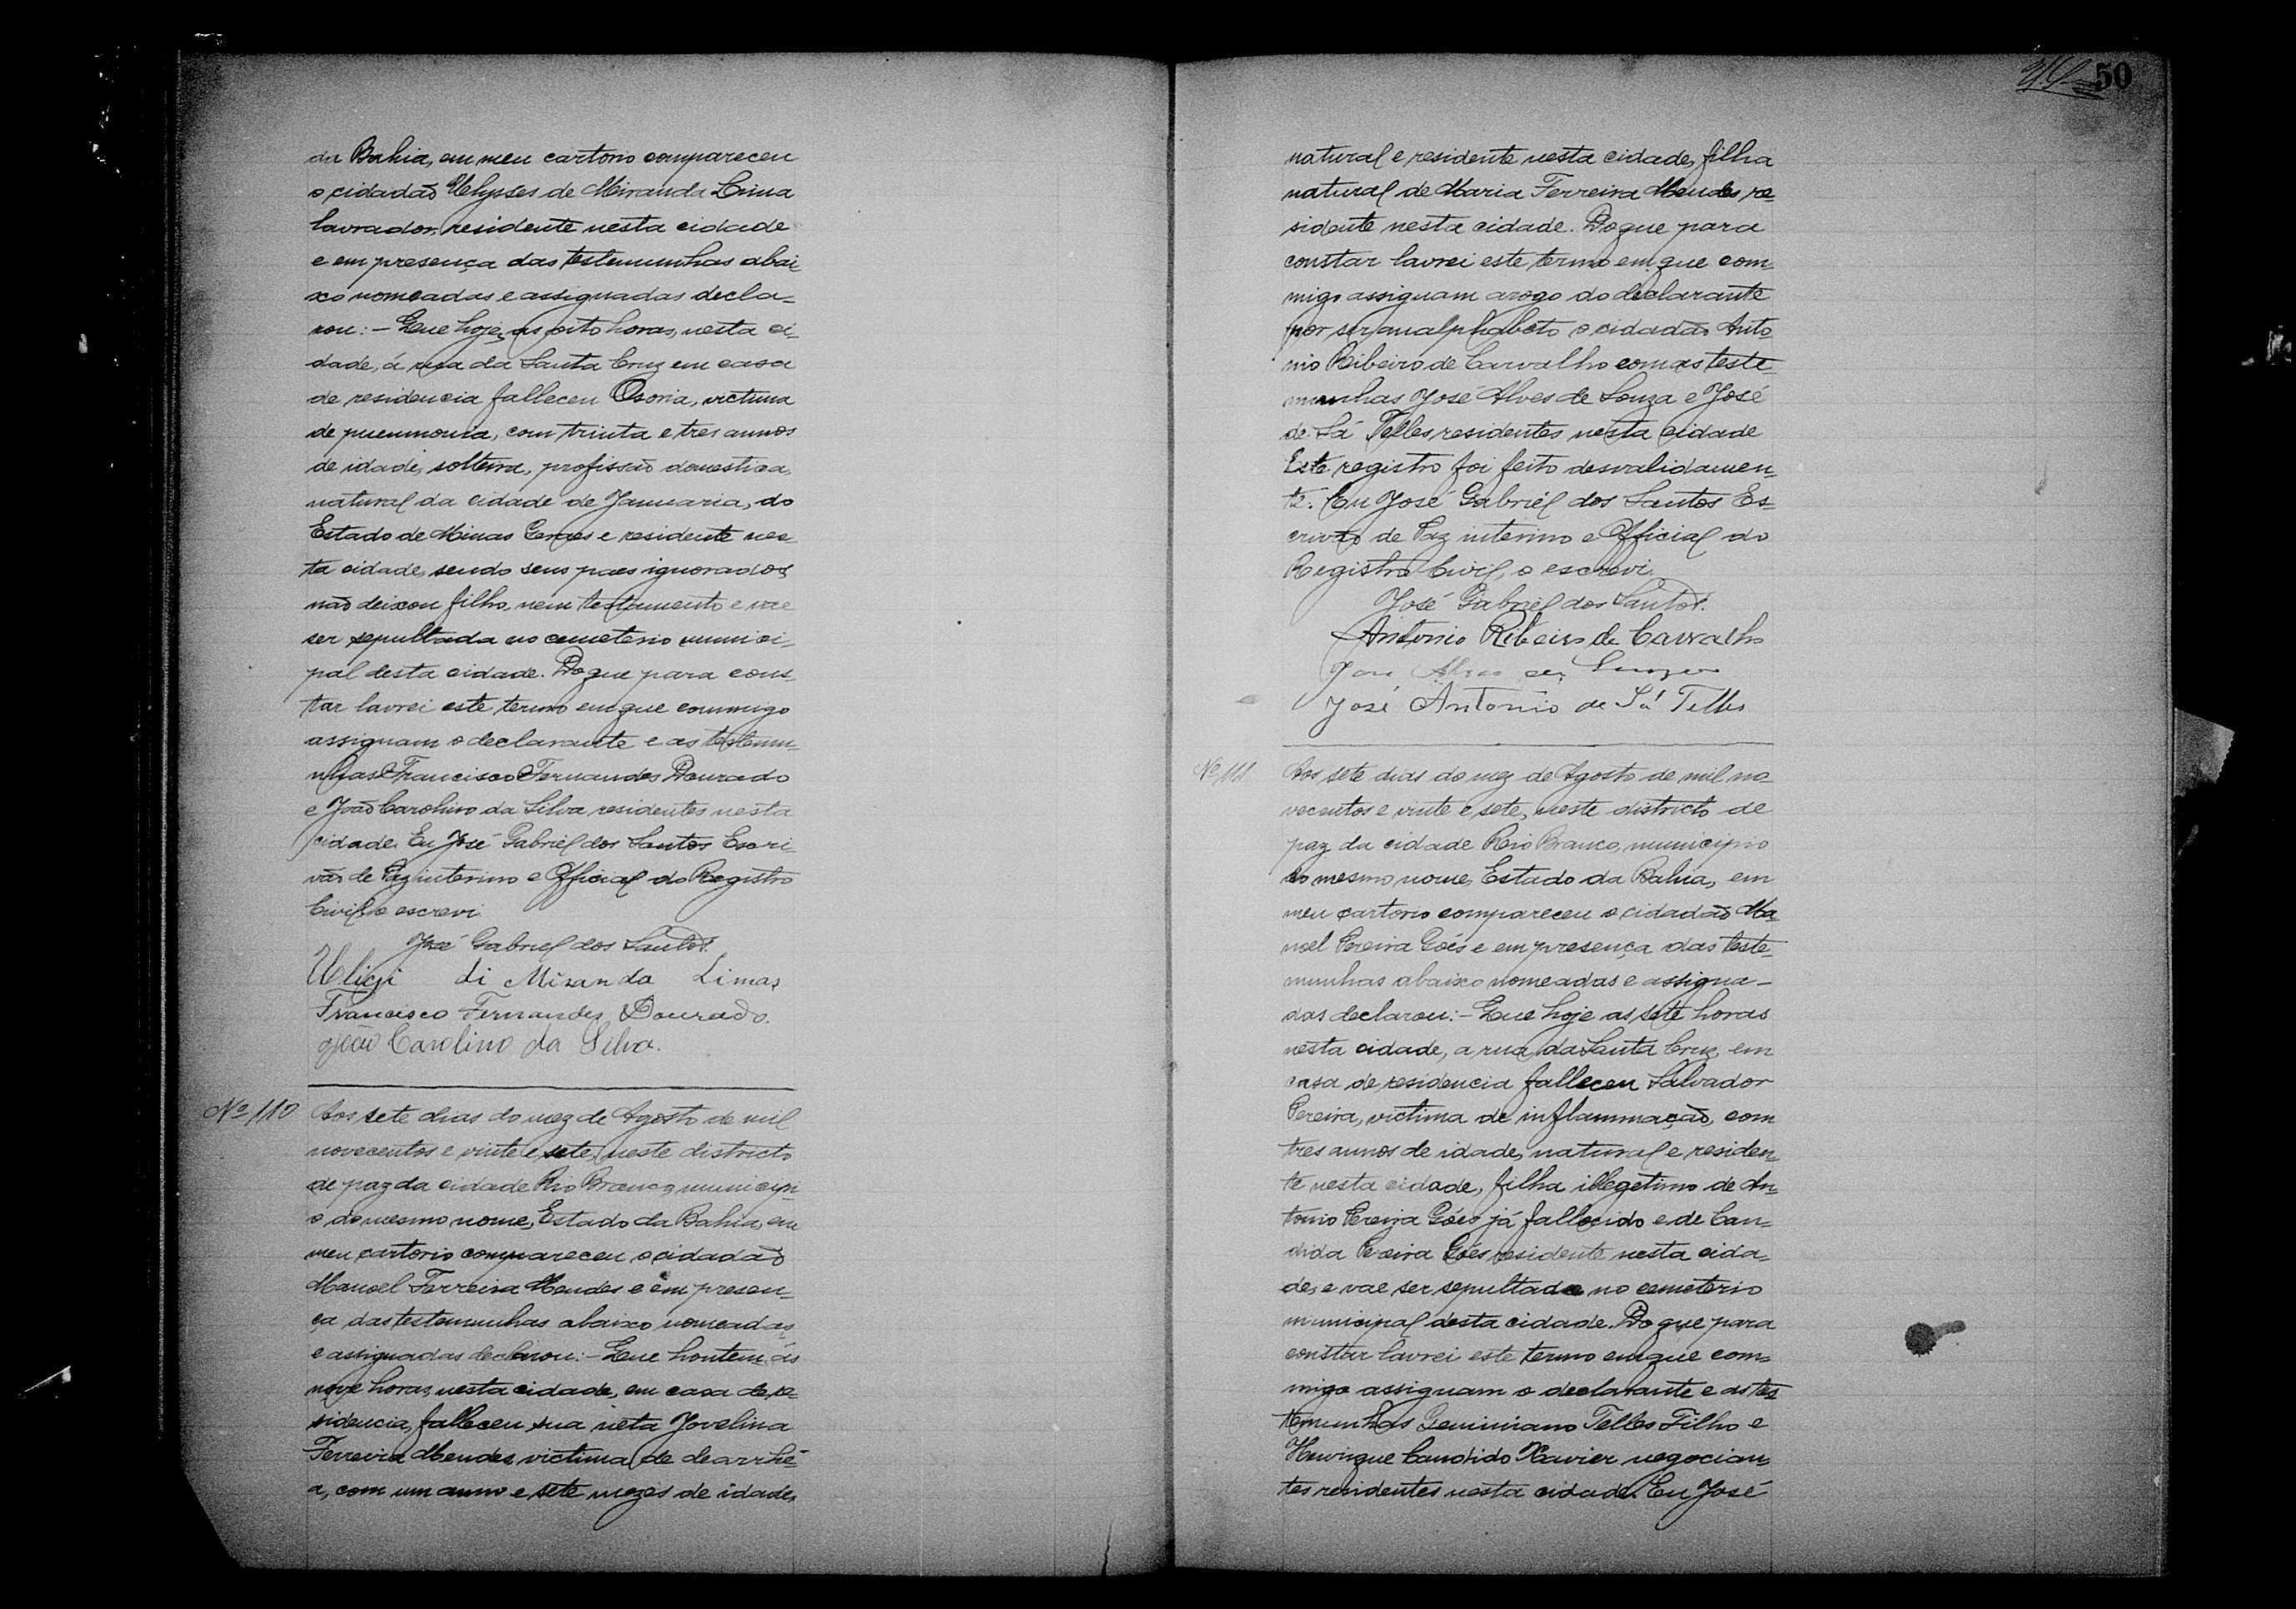 da Bahia, em meu cartorio compareceu
o cidadão Ulysses de Miranda Lima
lavrador, residente nesta cidade
e em presença das testemunhas abai-
xo nomeadas e assignadas decla-
rou: - Que hoje, as oito horas, nesta ci-
dade, á rua da Santa Cruz em casa
de residencia falleceu Osoria, victima
de pneumonia, com trinta e tres annos
de idade, solteira, profissão domestica,
natural da cidade de Januaria, do
Estado de Minas Geraes e residente nes-
ta cidade, sendo seus paes ignorados
não deixou filho, nem testamento e vae
ser sepultada no cemeterio munici-
pal desta cidade. Do que para cons-
tar lavrei este termo em que commigo
assignam o declarante e as testemu-
nhas Francisco Fernandes Dourado
e João Carolino da Silva residentes nesta
cidade. Eu José Gabriel dos Santos Escri-
vão de Paz interino e Official do Registro
Civil, o escrevi.
José Gabriel dos Santos.
Ulici di Miranda Limas
Francisco Fernandes Dourado.
João Carolino da Silva.
Nº 110 Aos sete dias do mez de Agosto de mil
novecentos e vinte e sete, neste districto
de paz da cidade Rio Branco, municipi-
o do mesmo nome, Estado da Bahia, em
meu cartorio compareceu o cidadão
Manoel Ferreira Mendes e em presen-
ça das testemunhas abaixo nomeadas
e assignadas declarou: - Que hontem ás
nove horas, nesta cidade, em casa de re-
sidencia, falleceu sua neta Jovelina
Ferreira Mendes, victima de dearrhé-
a, com um anno e sete mezes de idade,
50
natural e residente nesta cidade, filha
natural de Maria Ferreira Mendes re-
sidente nesta cidade. Do que para
constar lavrei este termo em que com-
migo assignam arogo do declarante
por ser analphabeto o cidadão Anto-
nio Ribeiro de Carvalho com as teste-
munhas José Alves de Souza e José
de Sá Telles residentes nesta cidade
Este registro foi feito desvalidamen-
te. Eu José Gabriel dos Santos Es-
crivão de Paz interino e Official do
Registro Civil, o escrevi.
José Gabriel dos Santos.
Antonio Ribeiro de Carvalho
José Antonio de Sá Telles
Nº 111 Aos sete dias do mez de Agosto de mil no-
vecentos e vinte e sete, neste districto de
paz da cidade Rio Branco, municipio
do mesmo nome, Estado da Bahia, em
meu cartorio compareceu o cidadão Ma-
noel Pereira Góes e em presença das teste-
munhas abaixo nomeadas e assigna-
das declarou: - Que hoje as sete horas
nesta cidade, a rua da Santa Cruz, em
casa de residencia falleceu Salvador
Pereira, victima de inflammação, com
tres annos de idade, natural e residen-
te nesta cidade, filha illegetimo de An-
tonio Pereira Góes já fallecido e de Can-
dida Pereira Góes residente nesta cida-
de, e vae ser sepultado no cemeterio
municipal desta cidade. Do que para
constar lavrei este termo em que com-
migo assignam o declarante e as tes-
temunhas Geminiano Telles Filho e
Henrique Candido Xavier negocian-
tes residentes nesta cidade. Eu José